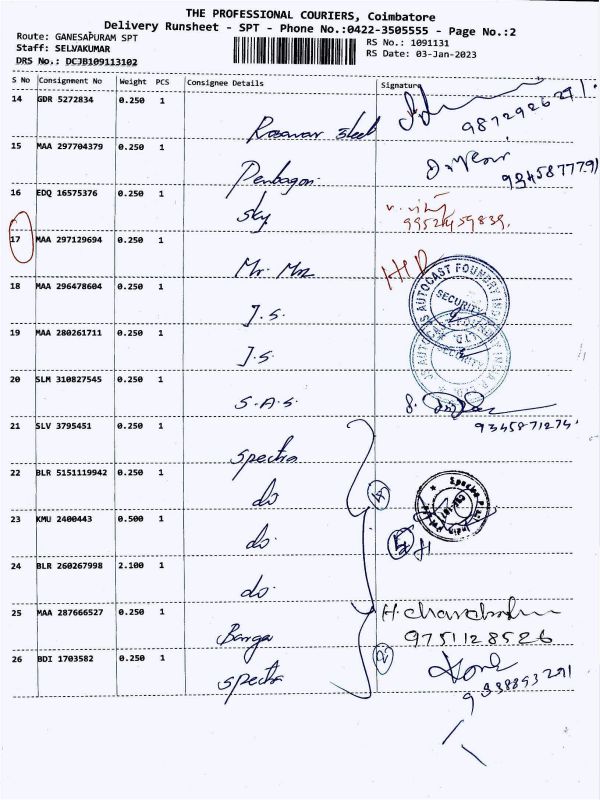 THE PROFESSIONAL COURIERS, Coimbatore
Delivery Runsheet - SPT - Phone No.:0422-3505555 - Page No.:2
Route: GANESAPURAM SPT
Staff: SELVAKUMAR
DRS No.: DCJB109113102
RS No.: 1091131
RS Date: 03-Jan-2023
S No Consignment No Weight PCS Consignee Details Signature
14 GDR 5272834 0.250 1 Steel
9872926291.
15 MAA 297704379 0.250 1 Pentagon
16 EDQ 16575376 0.250 1 Sky
17 MAA 297129694 0.250 1 Mr.
18 MAA 296478604 0.250 1 J.S.
19 MAA 280261711 0.250 1 J.S.
JS AUTOCAST FOUNDRY INDIA
SECURITY
20 SLM 310827545 0.250 1 S.A.S.
9345871274.
21 SLV 3795451 0.250 1 Spectra
22 BLR 5151119942 0.250 1 do
23 KMU 2400443 0.500 1 do
24 BLR 260267998 2.100 1 do
25 MAA 287666527 0.250 1 Banga
9751128526
26 BDI 1703582 0.250 1 Spectra
2